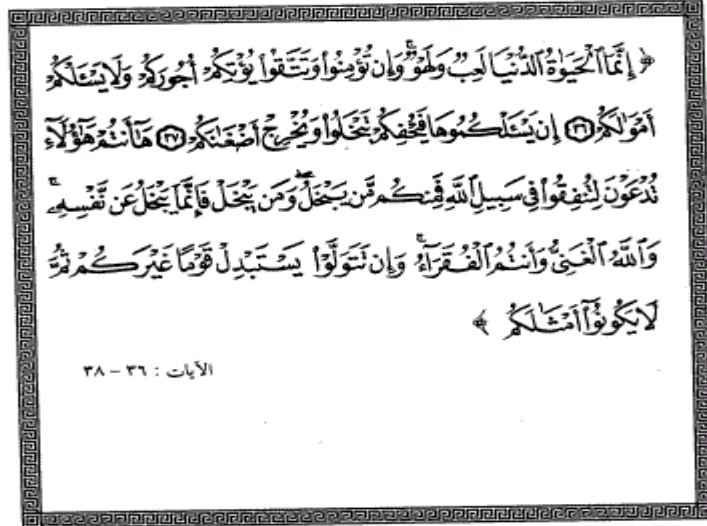 ﴿ إِنَّمَا ٱلْحَيَوٰةُ ٱلدُّنْيَا لَعِبٌ وَلَهْوٌ ۚ وَإِن تُؤْمِنُوا۟ وَتَتَّقُوا۟ يُؤْتِكُمْ أُجُورَكُمْ وَلَا يَسْـَٔلْكُمْ
أَمْوَٰلَكُمْ ٣٦ إِن يَسْـَٔلْكُمُوهَا فَيُحْفِكُمْ تَبْخَلُوا۟ وَيُخْرِجْ أَضْغَـٰنَكُمْ ٣٧ هَـٰٓأَنتُمْ هَـٰٓؤُلَآءِ
تُدْعَوْنَ لِتُنفِقُوا۟ فِى سَبِيلِ ٱللَّهِ فَمِنكُم مَّن يَبْخَلُ ۖ وَمَن يَبْخَلْ فَإِنَّمَا يَبْخَلُ عَن نَّفْسِهِۦ ۚ
وَٱللَّهُ ٱلْغَنِىُّ وَأَنتُمُ ٱلْفُقَرَآءُ ۚ وَإِن تَتَوَلَّوْا۟ يَسْتَبْدِلْ قَوْمًا غَيْرَكُمْ ثُمَّ
لَا يَكُونُوٓا۟ أَمْثَـٰلَكُم ﴾
الآيات : ٣٦ - ٣٨